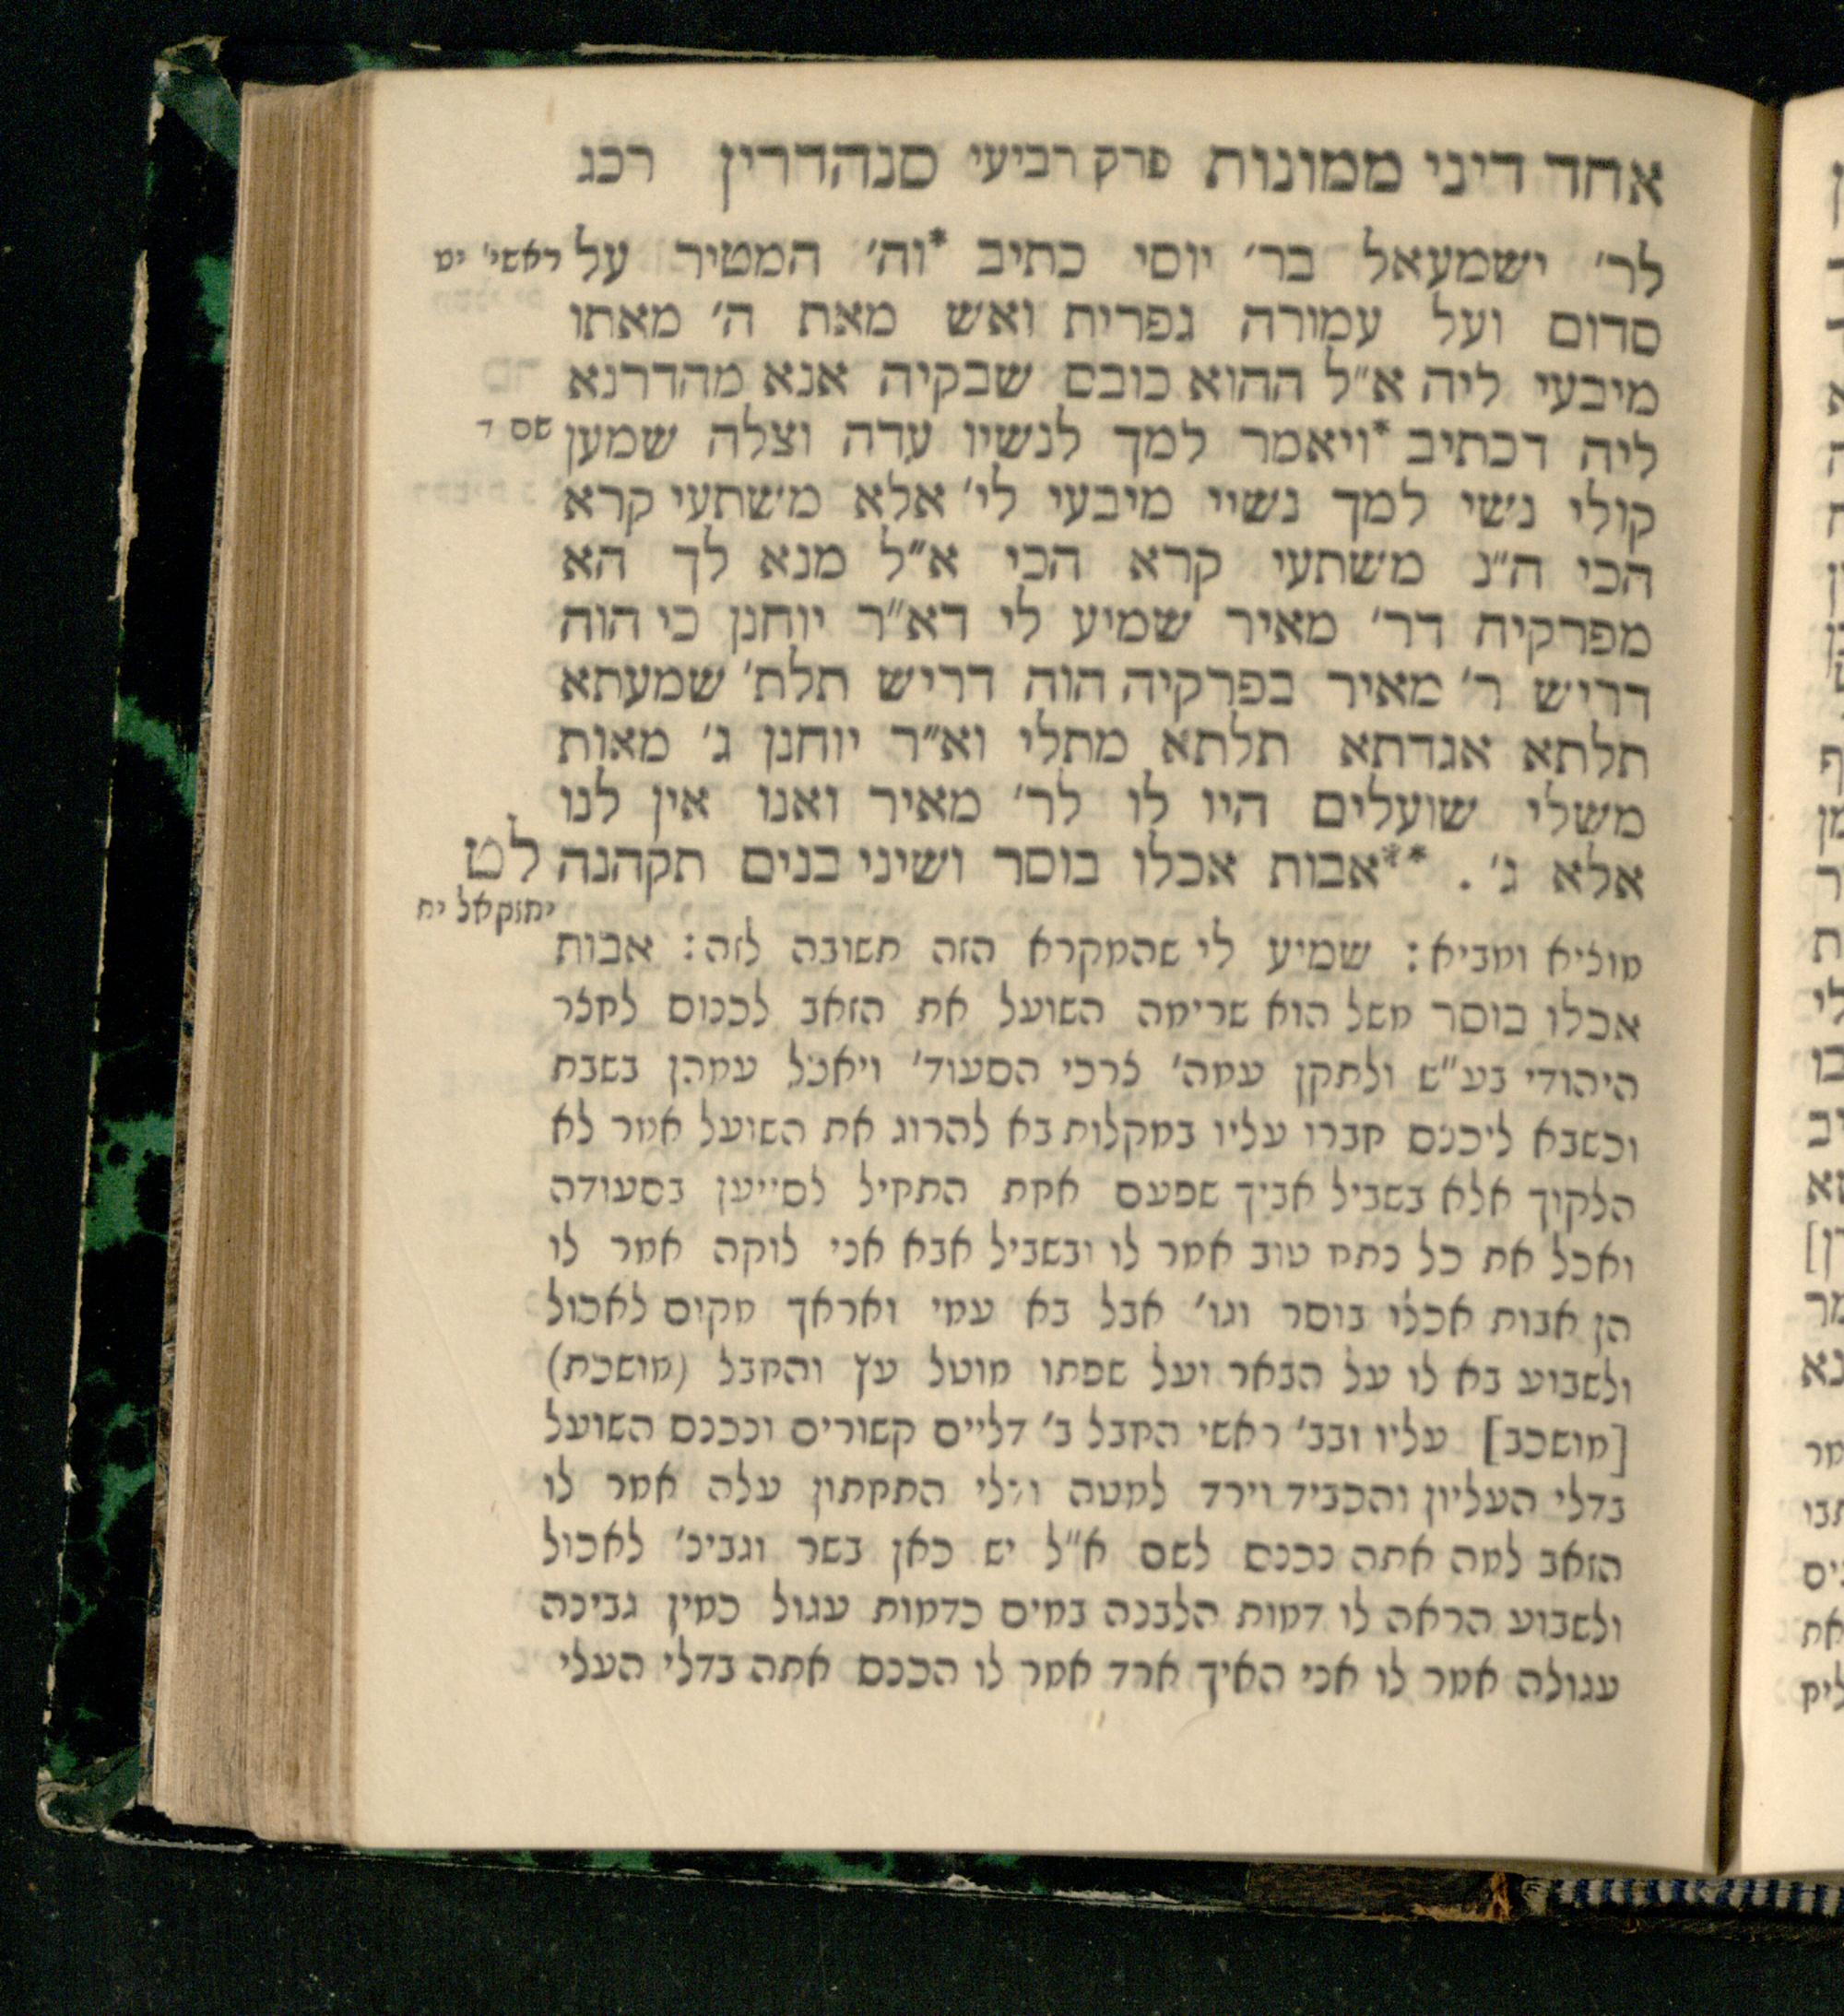 אחד דיני ממונות פרק רביעי סנהדרין רכג
לר׳ ישמעאל בר׳ יוסי כתיב *וה׳ המטיר על
ראשי׳ יט
סדום ועל עמורה גפרית ואש מאת ה׳ מאתו
מיבעי ליה א״ל ההוא כובס שבקיה אנא מהדרנא
ליה דכתיב *ויאמר למך לנשיו עדה וצלה שמען
שם ד
קולי נשי למך נשיי מיבעי לי׳ אלא משתעי קרא
הכי ה״נ משתעי קרא הכי א״ל מנא לך הא
מפרקיה דר׳ מאיר שמיע לי דא״ר יוחנן כי הוה
דריש ר׳ מאיר בפרקיה הוה דריש תלת׳ שמעתא
תלתא אגדתא תלתא מתלי וא״ר יוחנן ג׳ מאות
משלי שועלים היו לו לר׳ מאיר ואנו אין לנו
אלא ג׳. **אבות אכלו בוסר ושיני בנים תקהנה
לט
יחזקאל יח
מוציא ומביא: שמיע לי שהמקרא הזה תשובה לזה: אבות
אכלו בוסר משל הוא שרימה השועל את הזאב לכנוס לחצר
היהודי בע״ש ולתקן עמה׳ צרכי הסעוד׳ ויאכל עמהן בשבת
וכשבא ליכנס חברו עליו במקלות בא להרוג את השועל אמר לא
הלקוך אלא בשביל אביך שפעם אחת התחיל לסייען בסעודה
ואכל את כל נתח טוב אמר לו ובשביל אבא אני לוקה אמר לו
הן אבות אכלו בוסר וגו׳ אבל בא עמי ואראך מקום לאכול
ולשבוע בא לו על הבאר ועל שפתו מוטל עץ והחבל (מושכת)
[מושכב] עליו ובב׳ ראשי החבל ב׳ דליים קשורים ונכנס השועל
בדלי העליון והכביד וירד למטה ודלי התחתון עלה אמר לו
הזאב למה אתה נכנס לשם א״ל יש כאן בשר וגבינ׳ לאכול
ולשבוע הראה לו דמות הלבנה במים כדמות עגול כמין גבינה
עגולה אמר לו אני האיך ארד אמר לו הכנס אתה בדלי העלי